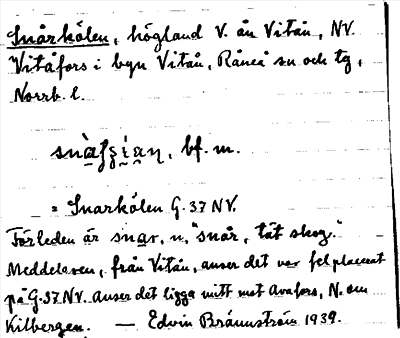 Snårkölen, högland V. ån Vitån, NV.
Vitåfors i byn Vitån, Råneå sn och tg,
Norrb. l.
bf. m.
= Snarkölen G. 37 NV.
Förleden är snar, n, "snår, tät skog."
Meddelaren, från Vitån, anser det var felplacerat
på G.37 NV. anser det ligga mitt mot Avafors, N. om
Kilbergen. — Edvin Brännström 1939.